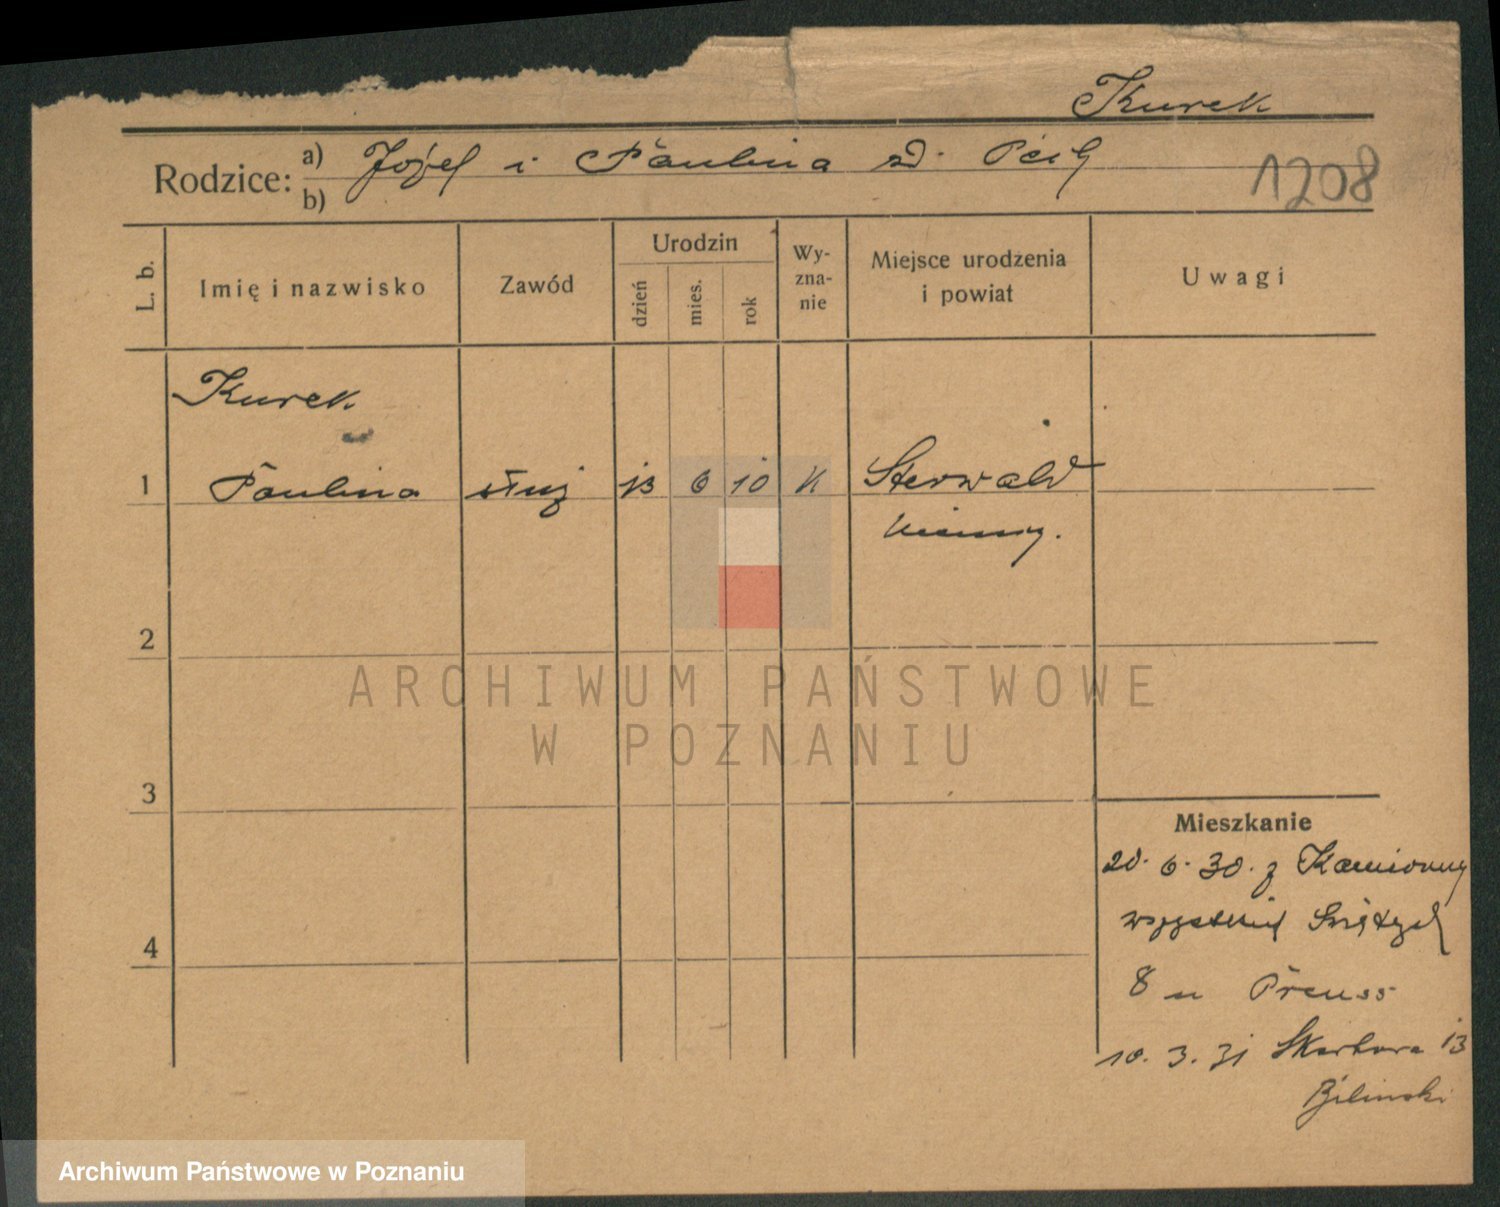 Kurek
Rodzice: a) Józef i Paulina zd.
b)
1208
L. b. Imię i nazwisko Zawód Urodzin dzień mies. rok Wy-zna-nie Miejsce urodzenia i powiat Uwagi
Kurek
1 Paulina służ 13 6 10 k Sterwald
Niemcy.
2
ARCHIWUM PAŃSTWOWE
W POZNANIU
3
Mieszkanie
20. 6. 30. z Kamionny
8 u Preuss
4
10. 3. 31 Skarbowa 13
Bilinski
Archiwum Państwowe w Poznaniu